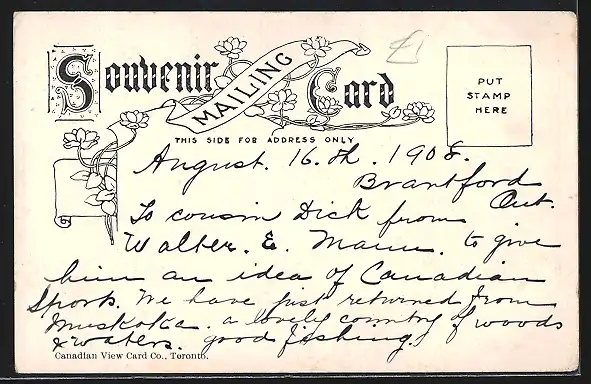 £1
Souvenir MAILING Card
PUT
STAMP
HERE
THIS SIDE FOR ADDRESS ONLY
August. 16.th. 1908.
Brantford
Ont.
To cousin Dick from
Walter. E. Mann. to give
him an idea of Canadian
Sports. We have just returned from
Muskoka. a lovely country of woods
& waters. good fishing!
Canadian View Card Co., Toronto.